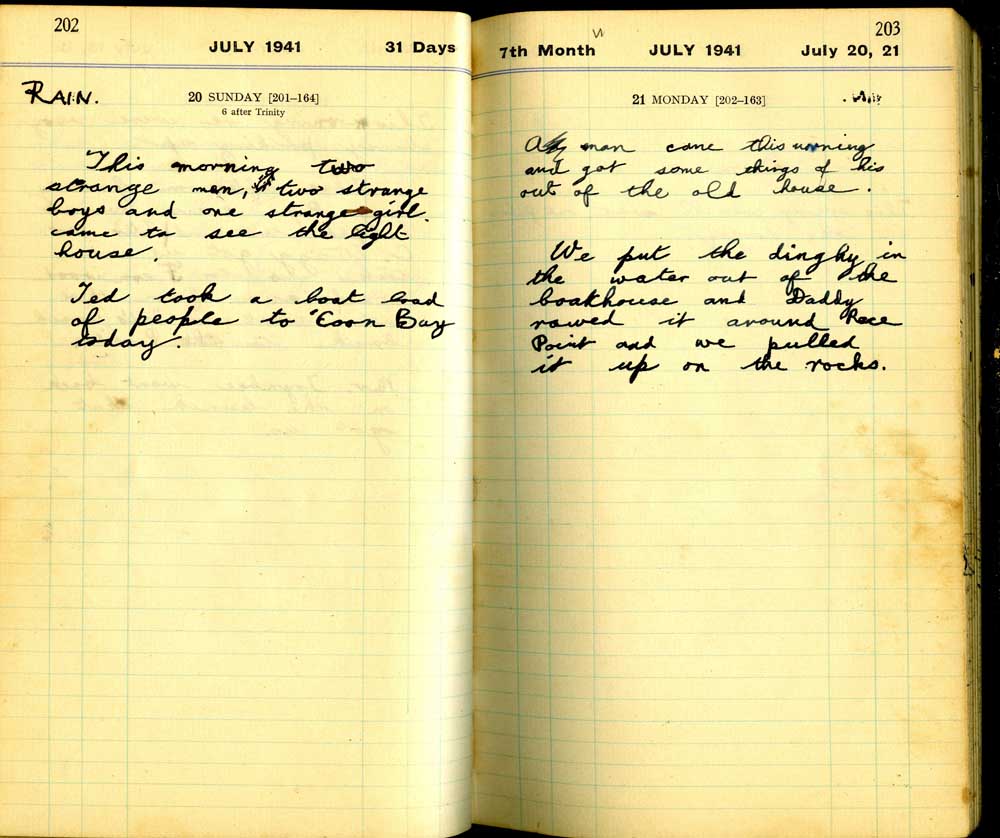 202
JULY 1941 31 Days
RAIN.
20 SUNDAY [201–164]
6 after Trinity
This morning two
strange men, two strange
boys and one strange girl
came to see the light
house.
Ted took a boat load
of people to Coon Bay
today.
203
7th Month JULY 1941 July 20, 21
21 MONDAY [202–163]
A man came this morning
and got some things of his
out of the old house.
We put the dinghy in
the water out of the
boathouse and Daddy
rowed it around Race
Point and we pulled
it up on the rocks.